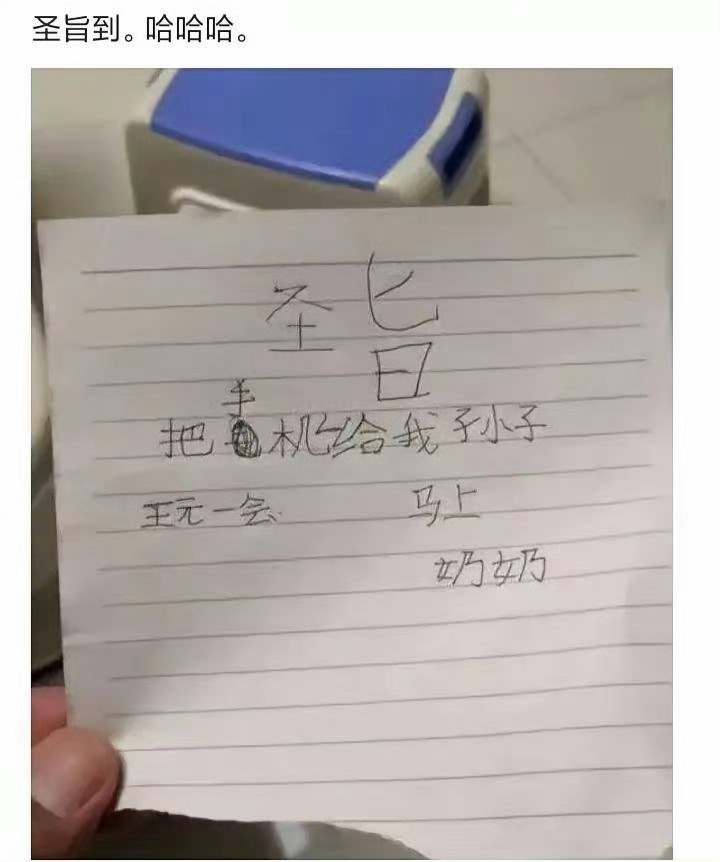 圣旨到。哈哈哈。
圣旨
把手机给我孙小子
王元一会 马上
奶奶